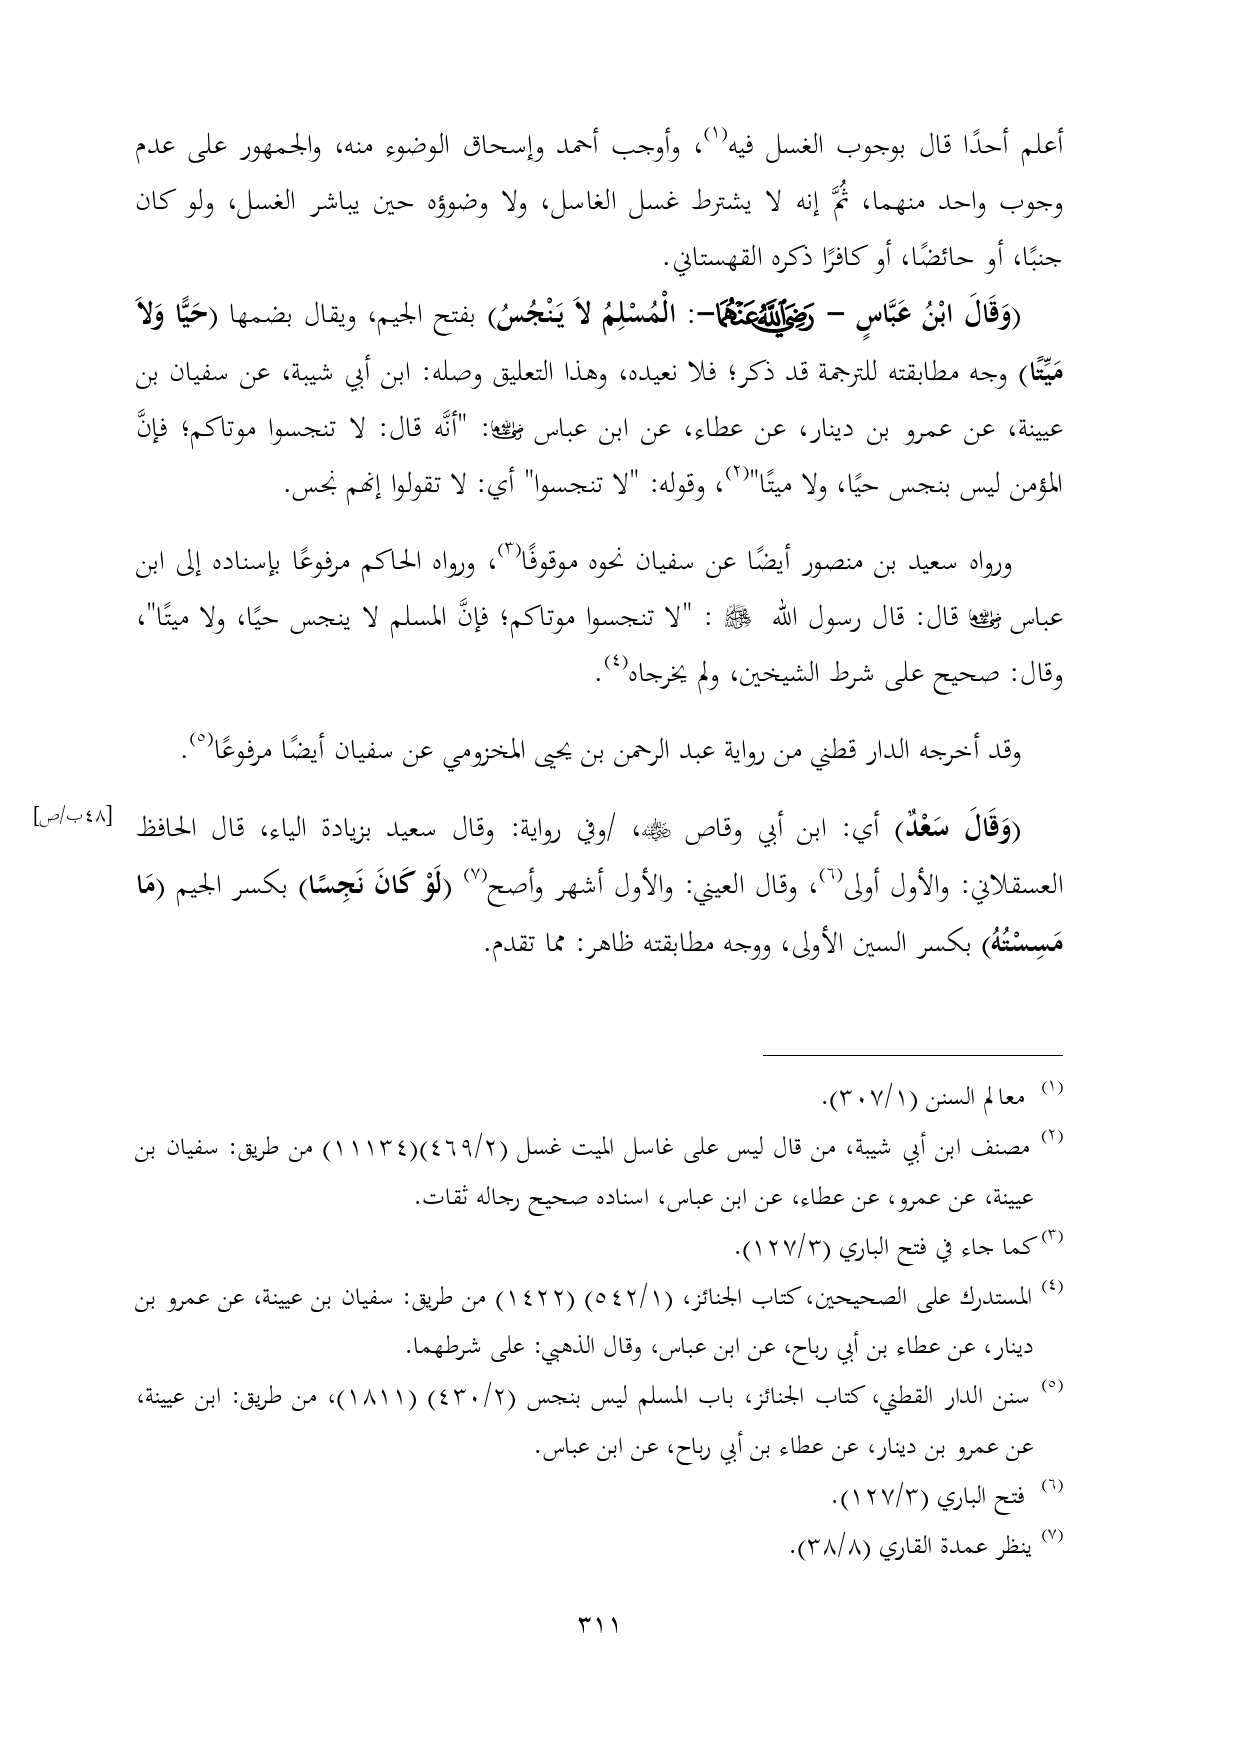 أعلم أحدًا قال بوجوب الغسل فيه(١)، وأوجب أحمد وإسحاق الوضوء منه، والجمهور على عدم
وجوب واحد منهما، ثُمَّ إنه لا يشترط غسل الغاسل، ولا وضوؤه حين يباشر الغسل، ولو كان
جنبًا، أو حائضًا، أو كافرًا ذكره القهستاني.
(وَقَالَ ابْنُ عَبَّاسٍ – رَضِيَ اللَّهُ عَنْهُمَا–: الْمُسْلِمُ لاَ يَنْجُسُ) بفتح الجيم، ويقال بضمها (حَيًّا وَلاَ
مَيِّتًا) وجه مطابقته للترجمة قد ذكر؛ فلا نعيده، وهذا التعليق وصله: ابن أبي شيبة، عن سفيان بن
عيينة، عن عمرو بن دينار، عن عطاء، عن ابن عباس رضي الله عنهما: "أنَّه قال: لا تنجسوا موتاكم؛ فإنَّ
المؤمن ليس بنجس حيًا، ولا ميتًا"(٢)، وقوله: "لا تنجسوا" أي: لا تقولوا إنهم نجس.
ورواه سعيد بن منصور أيضًا عن سفيان نحوه موقوفًا(٣)، ورواه الحاكم مرفوعًا بإسناده إلى ابن
عباس رضي الله عنهما قال: قال رسول الله ﷺ : "لا تنجسوا موتاكم؛ فإنَّ المسلم لا ينجس حيًا، ولا ميتًا"،
وقال: صحيح على شرط الشيخين، ولم يخرجاه(٤).
وقد أخرجه الدار قطني من رواية عبد الرحمن بن يحيى المخزومي عن سفيان أيضًا مرفوعًا(٥).
(وَقَالَ سَعْدٌ) أي: ابن أبي وقاص رضي الله عنه، /وفي رواية: وقال سعيد بزيادة الياء، قال الحافظ [٤٨ب/ص]
العسقلاني: والأول أولى(٦)، وقال العيني: والأول أشهر وأصح(٧) (لَوْ كَانَ نَجِسًا) بكسر الجيم (مَا
مَسِسْتُهُ) بكسر السين الأولى، ووجه مطابقته ظاهر: مما تقدم.
(١) معالم السنن (٣٠٧/١).
(٢) مصنف ابن أبي شيبة، من قال ليس على غاسل الميت غسل (٤٦٩/٢)(١١١٣٤) من طريق: سفيان بن
عيينة، عن عمرو، عن عطاء، عن ابن عباس، اسناده صحيح رجاله ثقات.
(٣) كما جاء في فتح الباري (١٢٧/٣).
(٤) المستدرك على الصحيحين، كتاب الجنائز، (٥٤٢/١) (١٤٢٢) من طريق: سفيان بن عيينة، عن عمرو بن
دينار، عن عطاء بن أبي رباح، عن ابن عباس، وقال الذهبي: على شرطهما.
(٥) سنن الدار القطني، كتاب الجنائز، باب المسلم ليس بنجس (٤٣٠/٢) (١٨١١)، من طريق: ابن عيينة،
عن عمرو بن دينار، عن عطاء بن أبي رباح، عن ابن عباس.
(٦) فتح الباري (١٢٧/٣).
(٧) ينظر عمدة القاري (٣٨/٨).
٣١١